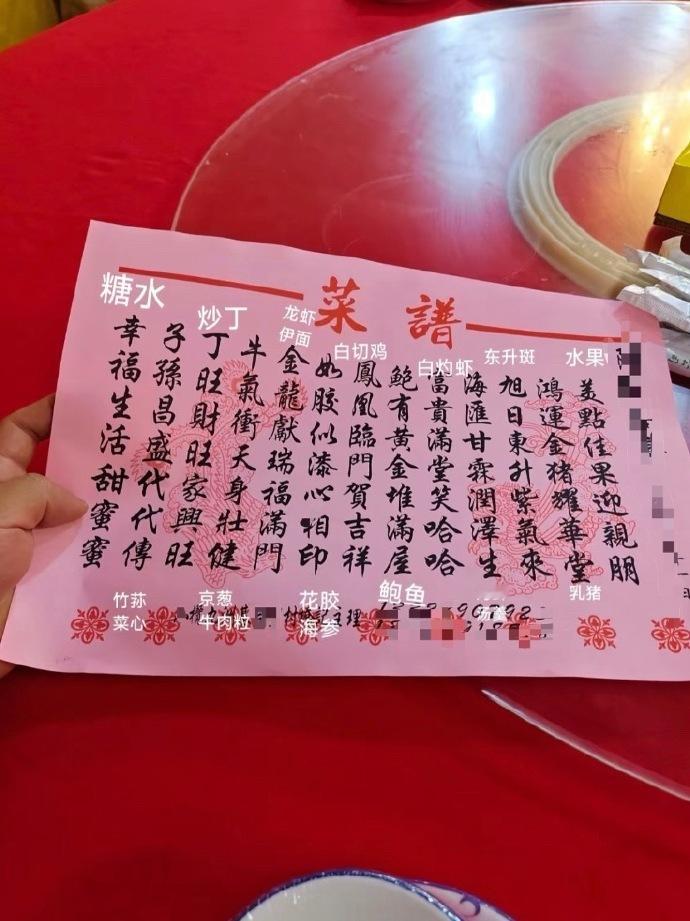 菜譜
美點佳果迎親朋
鴻運金猪耀華堂
旭日東升紫氣來
海匯甘霖潤澤生
富貴滿堂笑哈哈
鮑有黃金堆滿屋
鳳凰臨門賀吉祥
如膠似漆心相印
金龍獻瑞福滿門
牛氣衝天身壯健
丁旺財旺家興旺
子孫昌盛代代傳
幸福生活甜蜜蜜
糖水
炒丁
龙虾
伊面
白切鸡
白灼虾
东升斑
水果
竹荪
菜心
京葱
牛肉粒
花胶
海参
鲍鱼
汤羹
乳猪